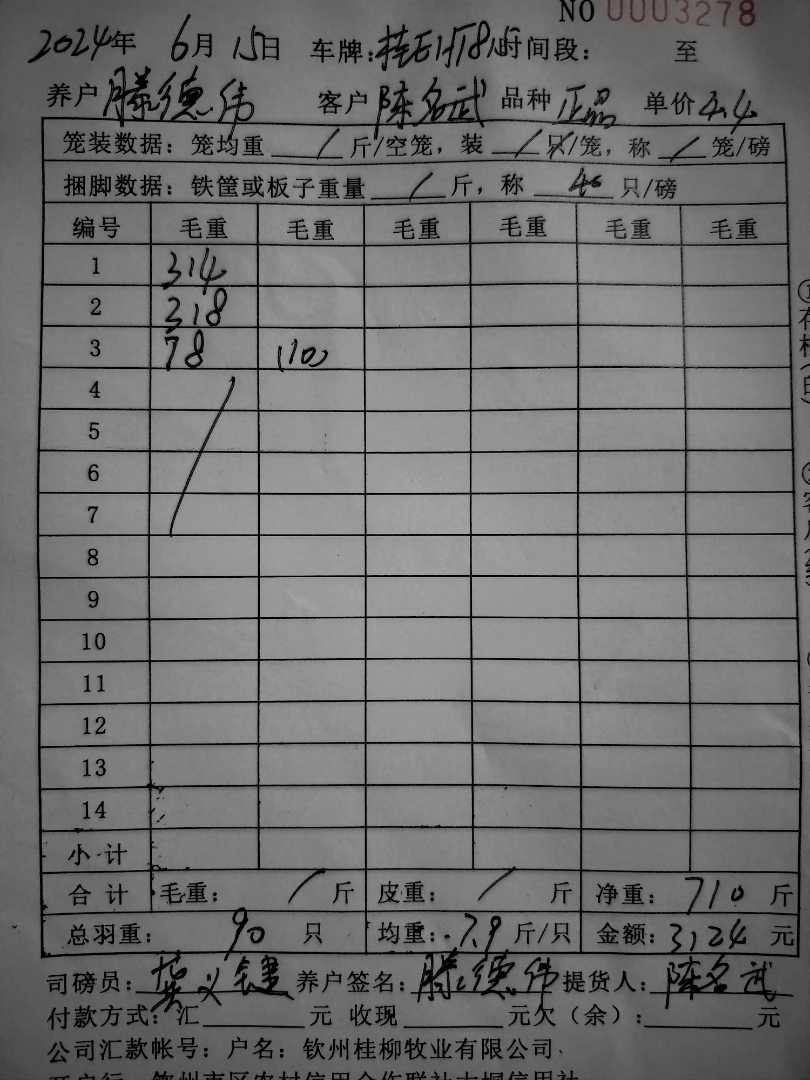 NO 0003278
2024年 6月 15日 车牌: 时间段: 至
养户 滕德伟 客户 陈名武 品种 正品 单价 4.4
笼装数据: 笼均重 / 斤/空笼, 装 / 只/笼, 称 / 笼/磅
捆脚数据: 铁筐或板子重量 / 斤, 称 40 只/磅
编号 毛重 毛重 毛重 毛重 毛重 毛重
1 314
2 318
3 78 (10)
4
5
6
7
8
9
10
11
12
13
14
小计
合计 毛重: / 斤 皮重: / 斤 净重: 710 斤
总羽重: 90 只 均重: 7.9 斤/只 金额: 3124 元
司磅员: 龚义键 养户签名: 滕德伟 提货人: 陈名武
付款方式: 汇 元 收现 元欠(余): 元
公司汇款帐号: 户名: 钦州桂柳牧业有限公司